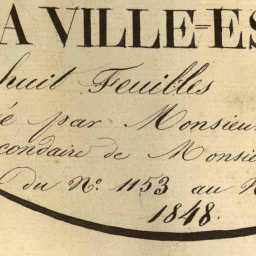 A VILLE-ES
huit Feuilles
é par Monsieur
condaire de Monsie
du N° 1153 au N
1848.